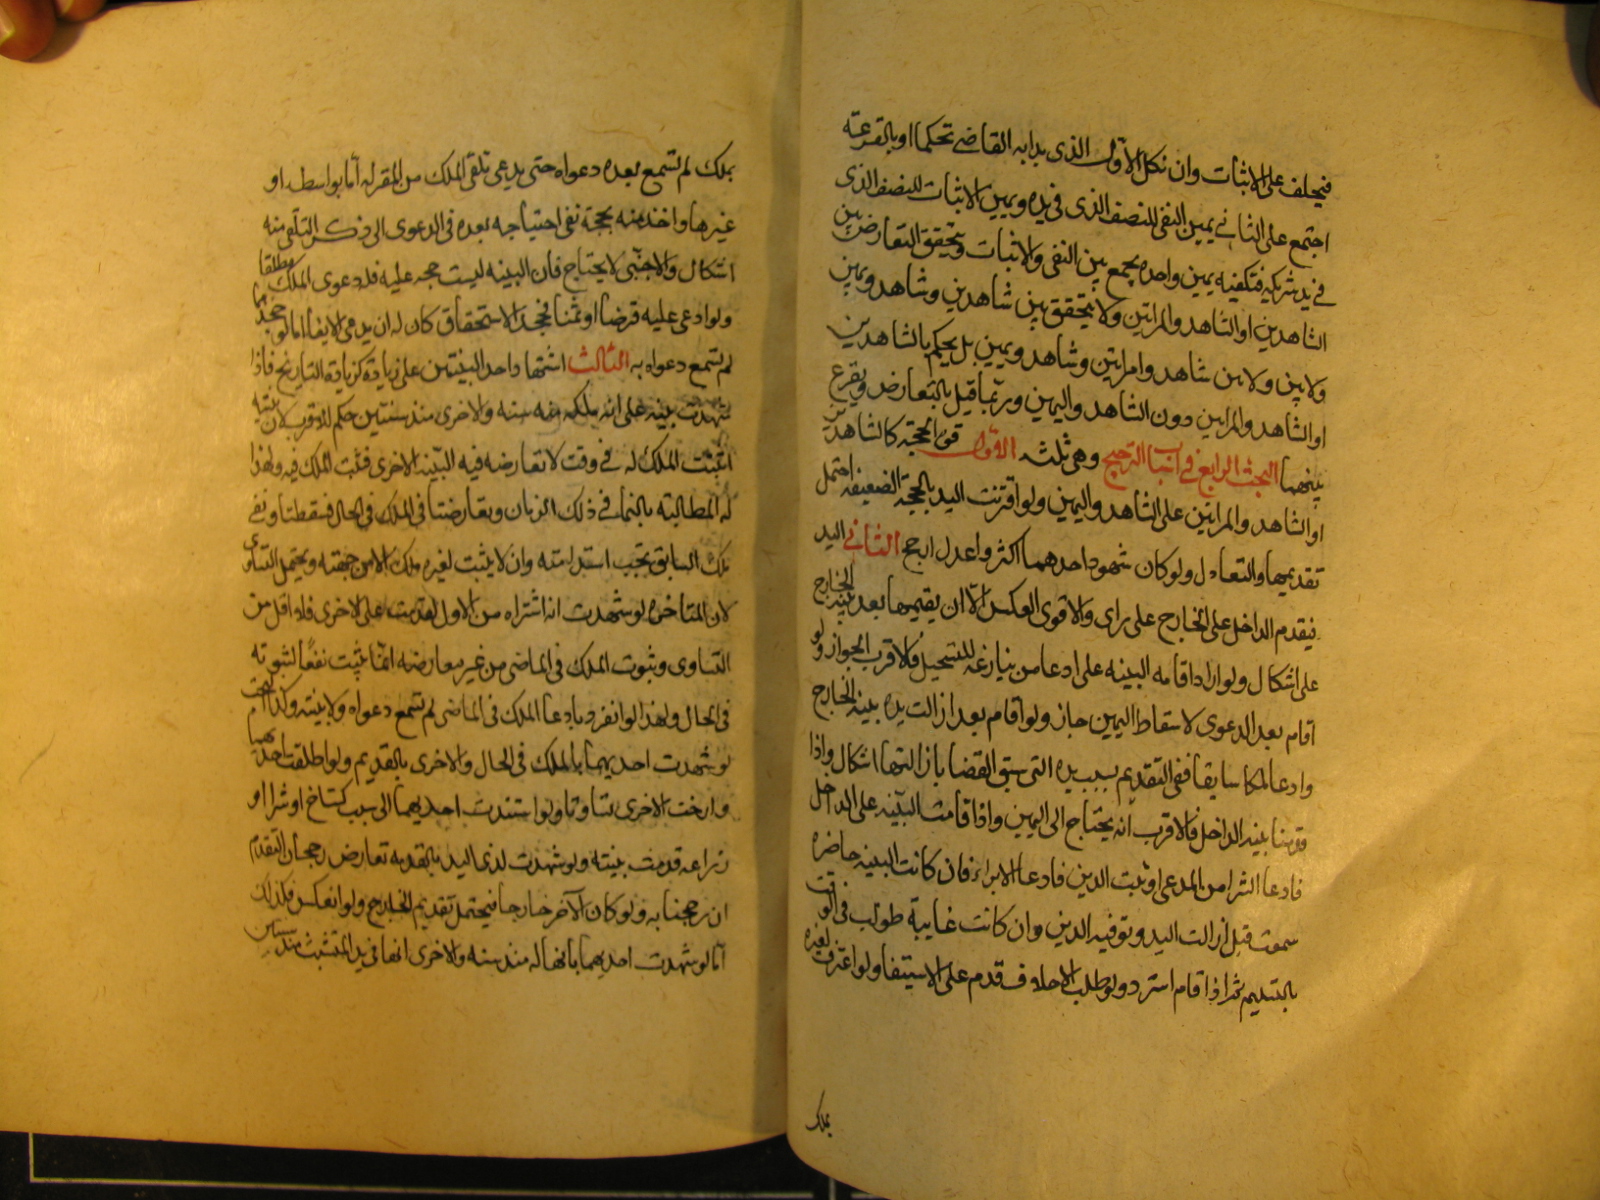 فيحلف على الاثبات وان نكل الاول الذى بدا به القاضي تحكما او بالقرعة
اجتمع على الثاني يمين النفى للنصف الذى فى يده ويمين الاثبات للنصف الذى
في يد شريكه فتكفيه يمين واحده يجمع بين النفى والاثبات ويتحقق التعارض بين
الشاهدين او الشاهد والمراتين ولا يتحقق بين شاهدين وشاهد ويمين
ولا بين ولا بين شاهد وامراتين وشاهد ويمين بل يحكم بالشاهدين
او الشاهد والمراتين دون الشاهد واليمين وربما قيل بالتعارض ويقرع
بينهما البحث الرابع في اسباب الترجيح وهى ثلثه الاول قوة الحجة كالشاهدين
او الشاهد والمراتين على الشاهد واليمين ولو اقترنت اليد بالحجة الضعيفه احتمل
تقديمها والتعادل ولو كان شهود احدهما اكثر او اعدل ارجح الثاني اليد
فيقدم الداخل على الخارج على راى والاقوى العكس الا ان يقيمها بعد بينة الخارج
على اشكال ولو اراد اقامه البينه على ادعا من ينازعه للتسجيل فالاقرب الجواز ولو
اقام بعد الدعوى لاسقاط اليمين جاز ولو اقام بعد ازالت يده ببينة الخارج
وادعا ملكا سابقا ففى التقديم بسبب يده التى سبق القضا بازالتها اشكال واذا
قدمنا بينه الداخل فالاقرب انه يحتاج الى اليمين واذا قامت البينه على الداخل
فادعا الشرا من المدعى او ثبت الدين فادعا الابراء فان كانت البينه حاضره
سمعت قبل ازالت اليد وتوفيه الدين وان كانت غايبة طولب فى الوقت
بالتسليم ثم اذا اقام استرد ولو طلب الاحلاف قدم على الاستيفا ولو اعترف لغيره
بملك
بملك لم تسمع بعده دعواه حتى يدعى تلقى الملك من المقر له اما بواسطه او
غيرها واخذ منه بحجة نفى احتياجه بعده فى الدعوى الى ذكر التلقى منه
اشكال والاجنبى لا يحتاج فان البينه ليست حجه عليه فله دعوى الملك مطلقا
ولو ادعى عليه قرضا او ثمنا فجحد الاستحقاق كان له ان يدعى الايفا اما لو جحدهما
لم تسمع دعواه به الثالث اشتمال احد البينتين على زيادة كزيادة التاريخ فاذا
شهدت بينه على انه ملكه منه سنه والاخرى منذ سنتين حكم للاقرب لان بينته
اثبتت الملك له في وقت لا تعارضه فيه البينه الاخرى فثبت الملك فيه ولهذا
له المطالبة بالنما فى ذلك الزمان وتعارضتا فى الملك فى الحال فسقطتا وبقى
ملك السابق تجب استدامته وان لا يثبت لغيره ملك الا من جهته ويحتمل التساوى
لان المتاخره لو شهدت انه اشتراه من الاول لقدمت على الاخرى فلا اقل من
التساوى وثبوت الملك فى الماضى من غير معارضه انما يثبت نفعا لثبوته
فى الحال ولهذا لو انفرد بادعا الملك فى الماضى لم تسمع دعواه ولا بينته وكذا البحث
لو شهدت احديهما بالملك فى الحال والاخرى بالقديم ولو اطلقت احديهما
وارخت الاخرى تساوتا ولو استندت احديهما الى سبب كنتاج او شرا او
زراعه قدمت بينته ولو شهدت لذى اليد بالقدمه تعارض رجحان التقدم
ان رجحنا به ولو كان الآخر خارجا فيحتمل تقديم الخارج ولو انعكس فكذلك
اما لو شهدت احديهما بانها له منذ سنه والاخرى انها فى يد المتشبث منذ سنتين